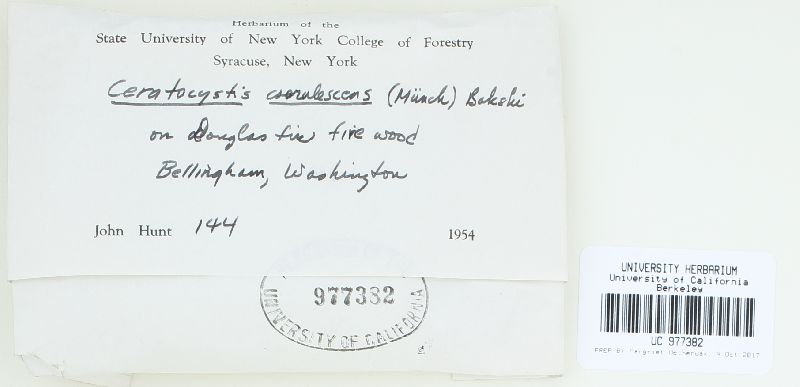 Herbarium of the
State University of New York College of Forestry
Syracuse, New York
Ceratocystis coerulescens (Münch) Bakshi
on Douglas fir fire wood
Bellingham, Washington
John Hunt 144 1954
977382
UNIVERSITY OF CALIFORNIA
UNIVERSITY HERBARIUM
University of California
Berkeley
UC 977382
PREP BY Margriet Oct 2017